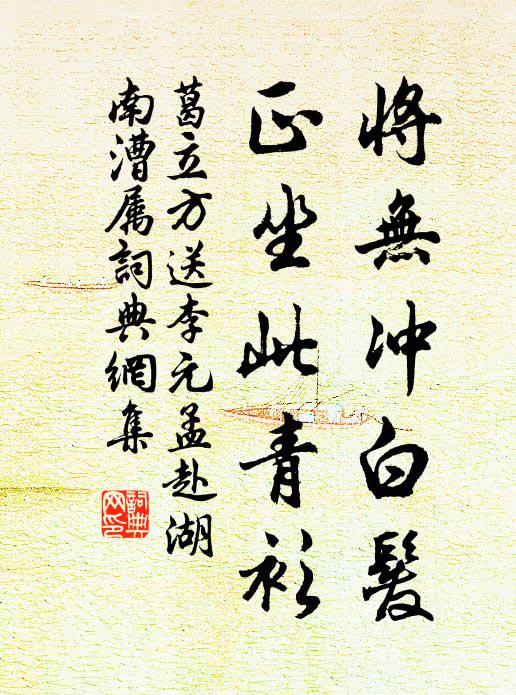 將無沖白髮
正坐此青衫
葛立方送李元孟赴湖
南漕属詞典網集
詞典
网印